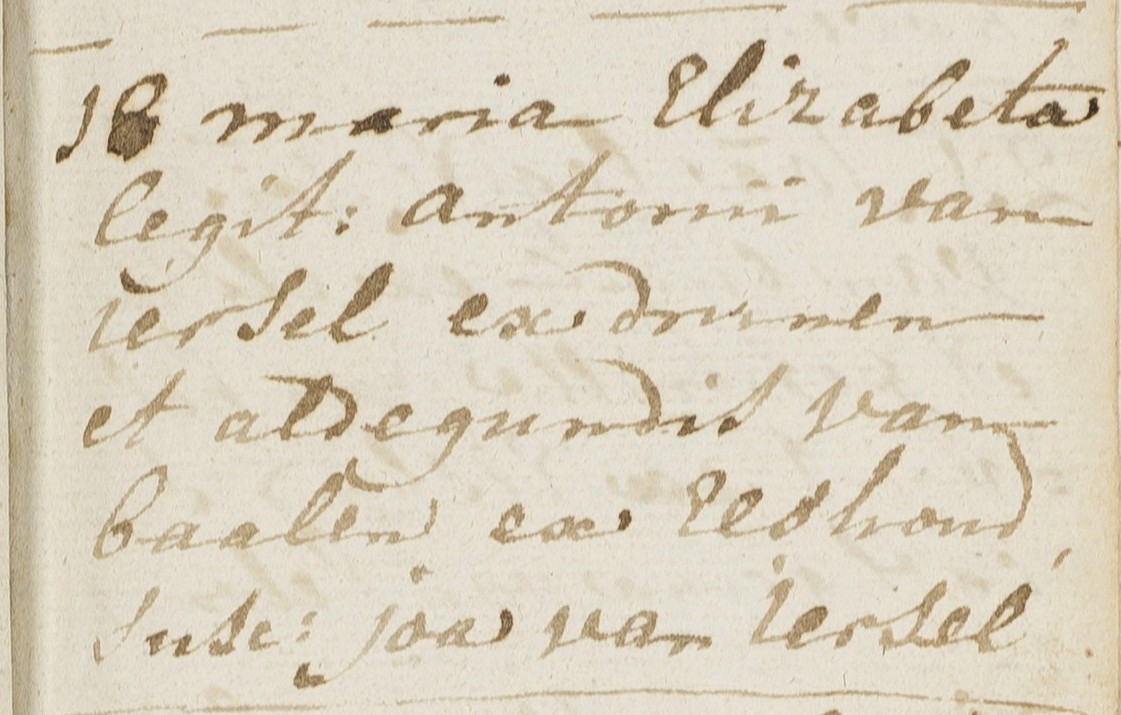 18 maria Elizabeta
legit: antonii van
iersel ex drunen
et aldegundis van
baalen ex Elshout,
susc: joa van iersel